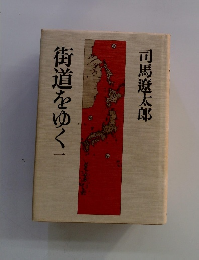 司馬遼太郎
街道をゆく 一